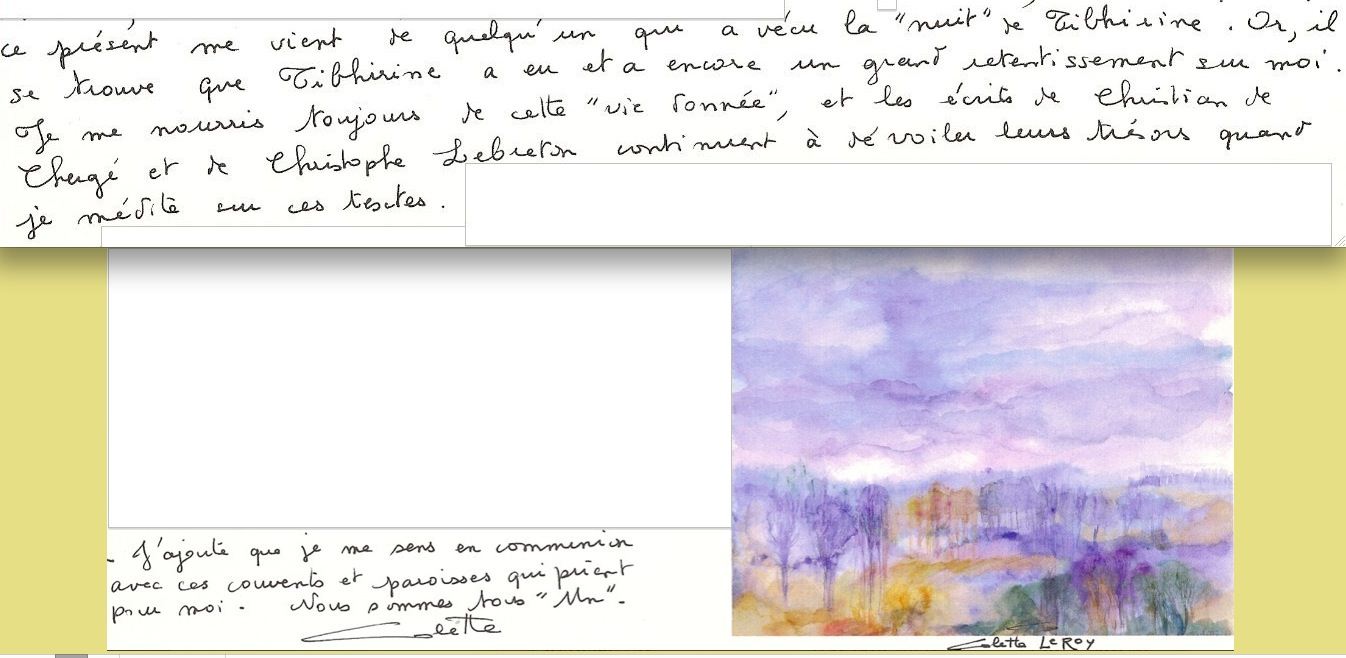 ce présent me vient de quelqu'un qui a vécu la "nuit" de Tibhirine. Or, il
se trouve que Tibhirine a eu et a encore un grand retentissement sur moi.
Je me nourris toujours de cette "vie donnée", et les écrits de Christian de
Chergé et de Christophe Lebreton continuent à dévoiler leurs trésors quand
je médite sur ces textes.
- J'ajoute que je me sens en communion
avec ces couvents et paroisses qui prient
pour moi. Nous sommes tous "Un".
Colette
Colette LeROY